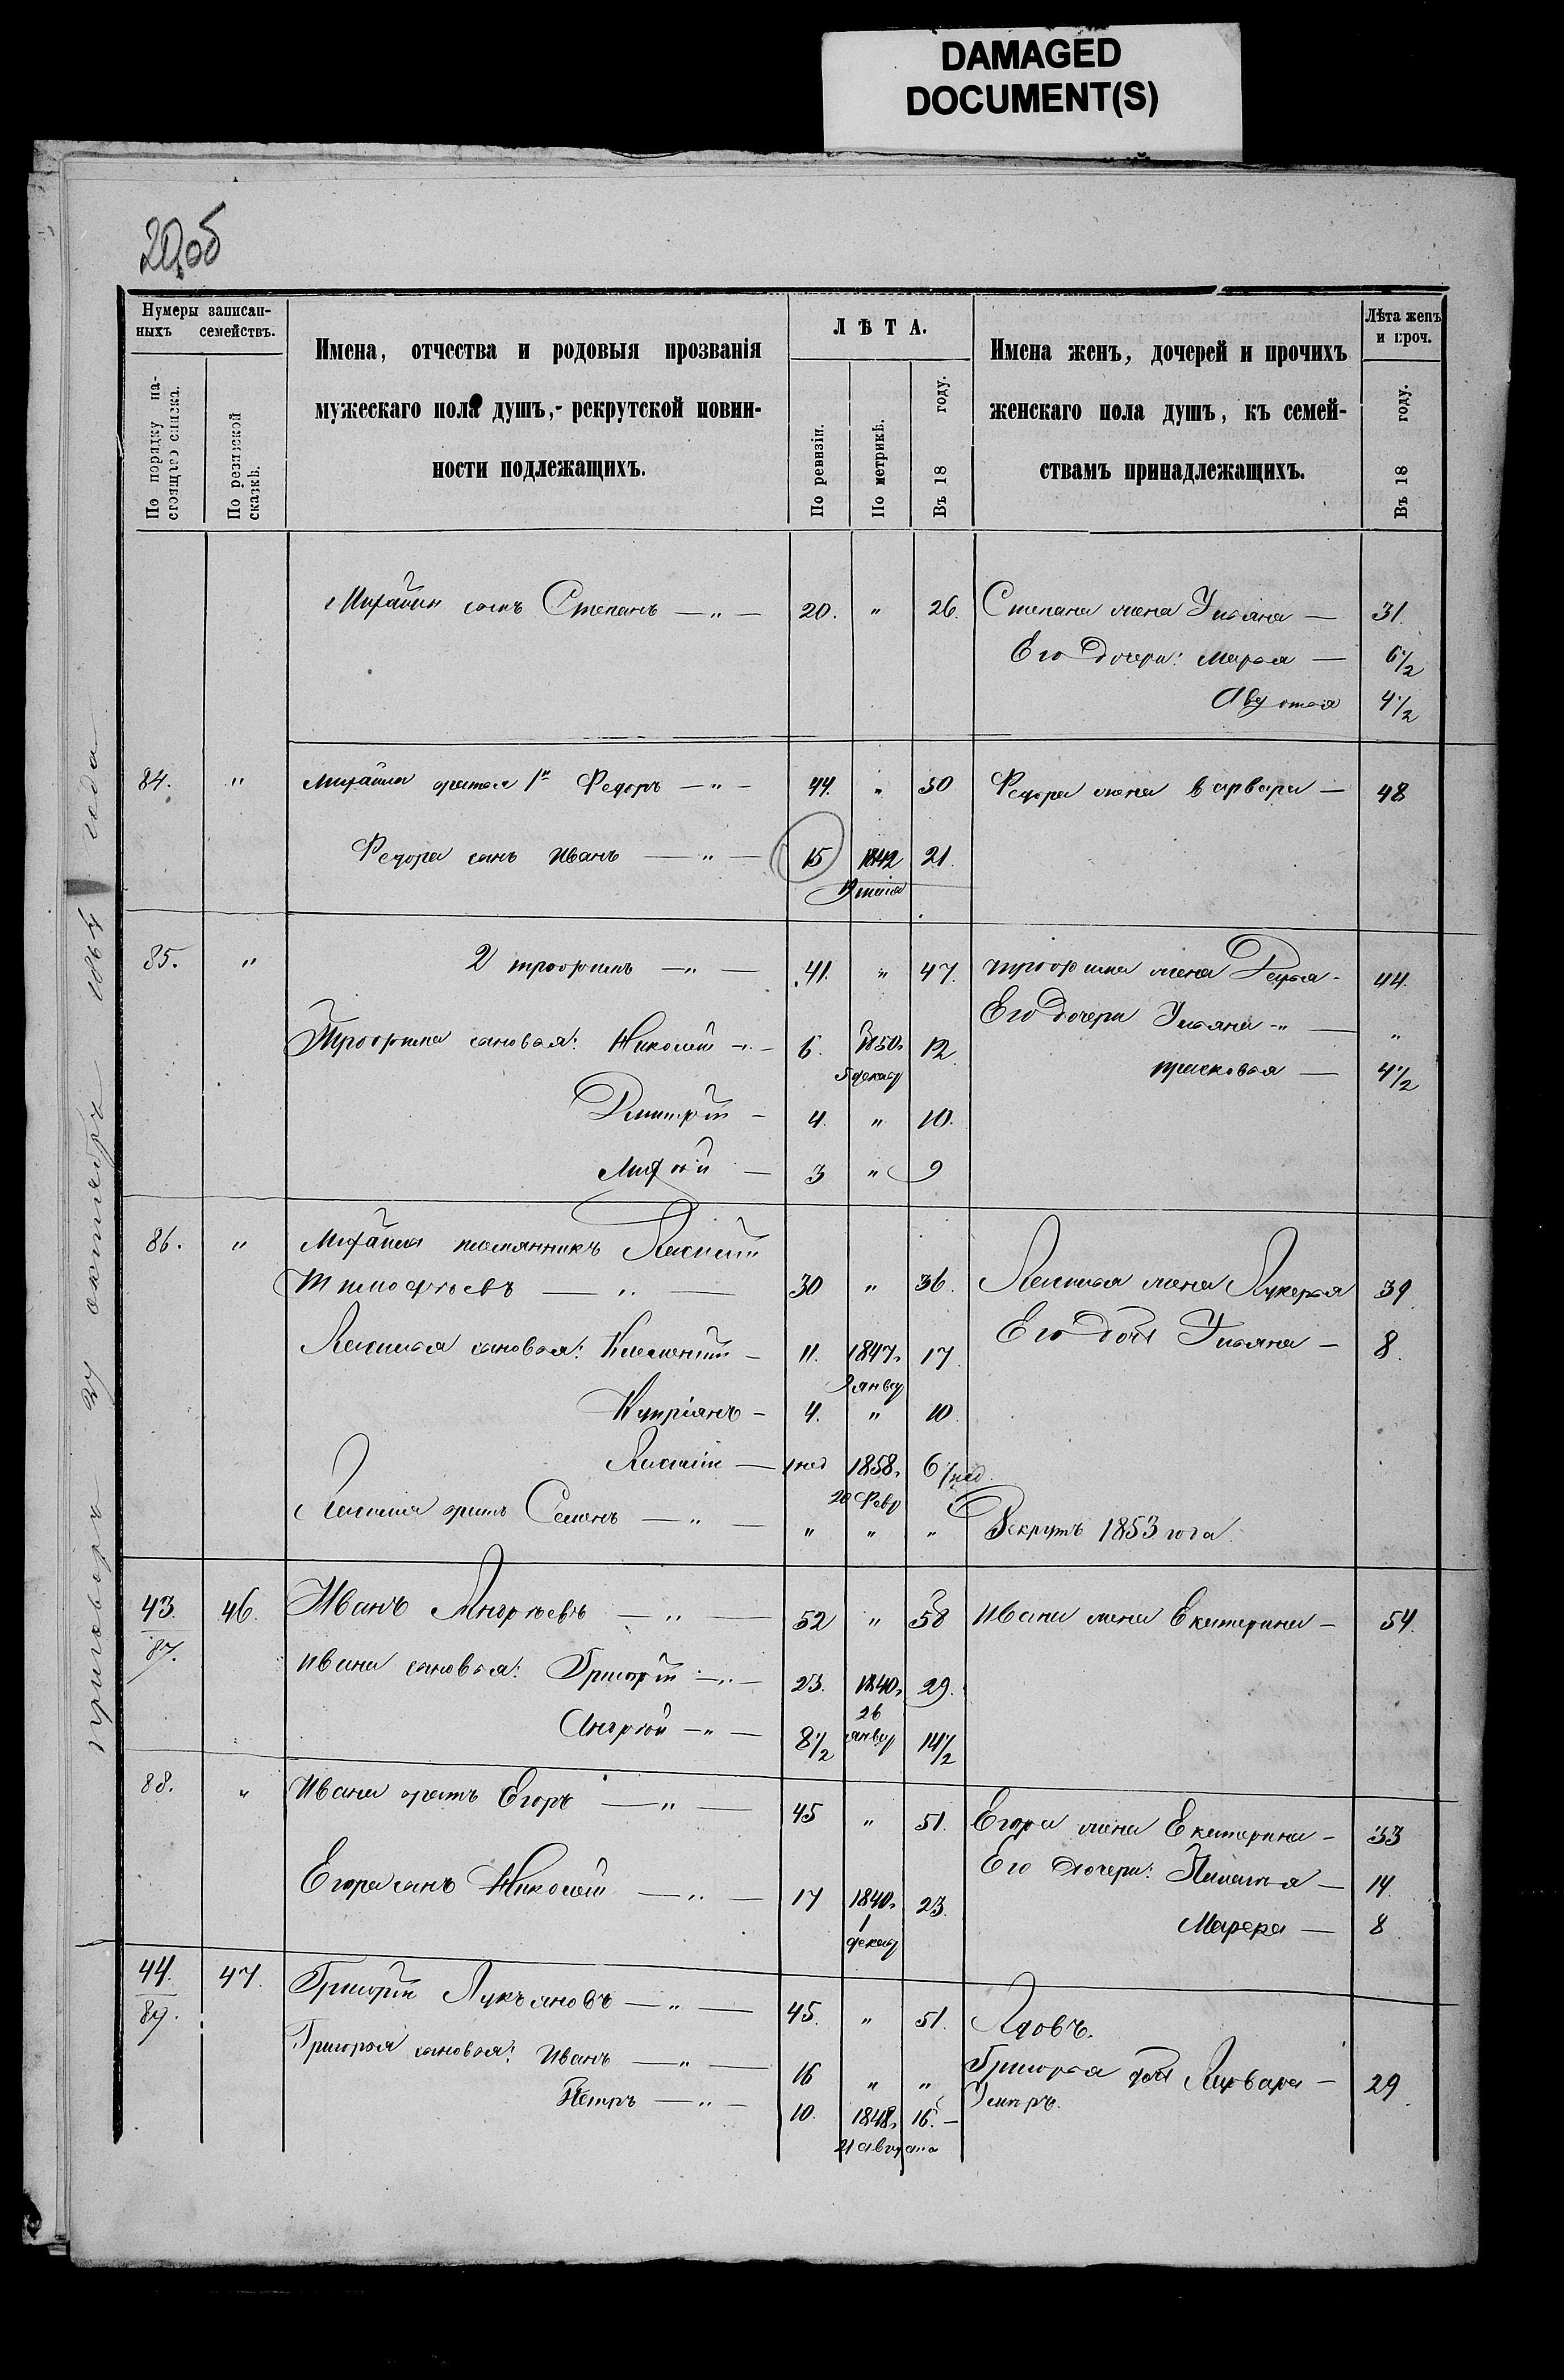 DAMAGED
DOCUMENT(S)
20об
Нумеры записан-
ныхъ семействъ.
По порядку на-
стоящаго списка.
По ревизской
сказкѣ.
Имена, отчества и родовыя прозванія
мужескаго пола душъ, рекрутской повин-
ности подлежащихъ.
ЛѢТА.
По ревизіи.
По метрикѣ.
Въ 18 году.
Имена женъ, дочерей и прочихъ
женскаго пола душъ, къ семей-
ствамъ принадлежащихъ.
Лѣта женъ
и проч.
Въ 18 году.
Михайлы сынъ Степанъ — " — 20. " 26. Степана жена Ульяна — 31.
Его дочери: Марья — 6 1/2
Авдотья 4 1/2
84. " Михайлы братья 1й Федоръ — " — 44. " 50 Федора жена Варвара — 48
Федора сынъ Иванъ — " — 15 1842 21.
85. " 2 Трофимъ — " — 41. " 47. Трофима жена Дарья - 44.
Трофима сыновья: Николай — " — 6. 1850. 12. Его дочери Ульяна " — "
5 декаб 4 1/2
Дмитрій — 4. " 10.
3 " 9
86. " Михайлы племянникъ Василій
Тимофѣевъ — " — 30 " 36. Василья жена Лукерья 39
Василья сыновья: Климентій — 11. 1847. 17 Его дочь Ульяна — 8.
янвр
Купріянъ — 4. " 10.
Василій — 1 нед 1858. 6
20 Февр
Василья братъ Семенъ — " — " " " Рекрутъ 1853 года
43. 46. Иванъ Андрѣевъ — " — 52 " 58 Ивана жена Екатерина — 54.
87.
Ивана сыновья: Григорій — " — 23. 1840. 29.
26
Андрѣй — " — 8 1/2 янвр 14 1/2
88. " Ивана братъ Егоръ — " — 45 " 51. Егора жена Екатерина — 33
Егора сынъ Николай — " — 17 1840. 23. Его дочери: Наталья — 14.
1
декаб Марфа — 8
44. 47. Григорій Лукьяновъ — " — 45. " 51. Вдовъ.
89.
Григорья сыновья: Иванъ — " — 16 " " Умеръ. Григорья дочь Варвара — 29.
Петръ — " — 10. 1848. 16. —
21 августа
приговоръ 24 октября 1864 года